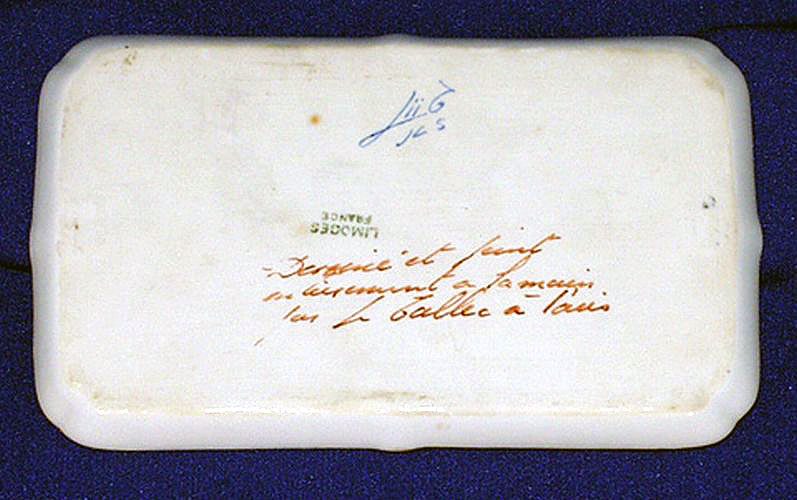 LIMOGES
FRANCE
Dessiné et peint
entièrement à la main
par Le Tallec à Paris